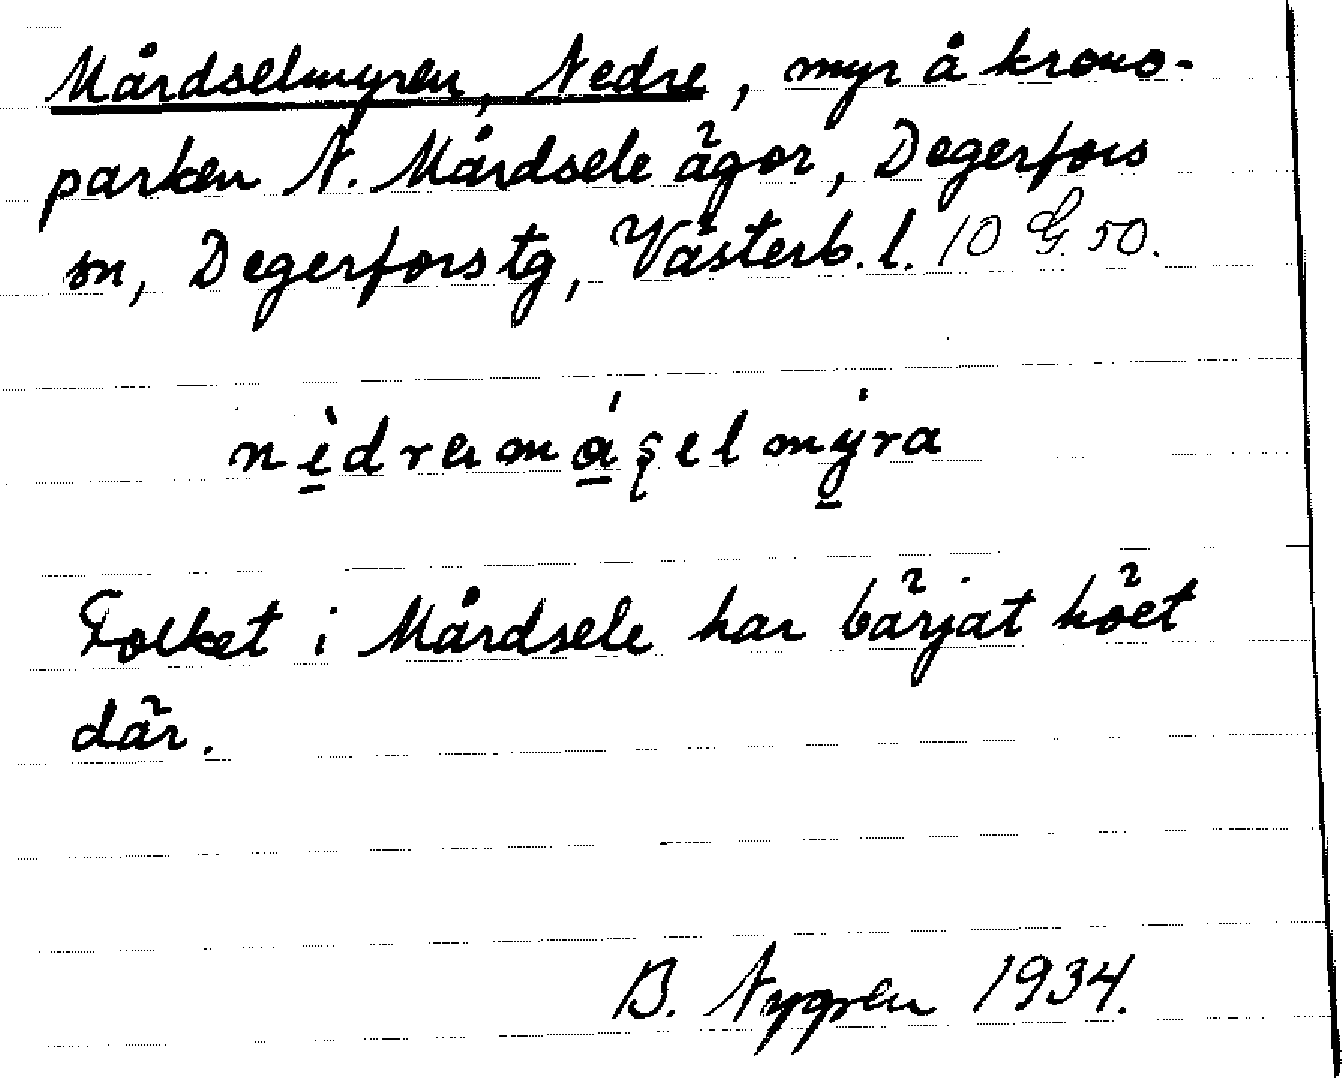 Mårdselmyren, Nedre, myr å krono-
parken N. Mårdsele ägor, Degerfors
sn, Degerfors tg, Västerb. l. 10 G. 50.
nèdramá̱s̨elmẏ̱ra
Folket i Mårdsele har bärjat höet
där.
B. Nygren 1934.